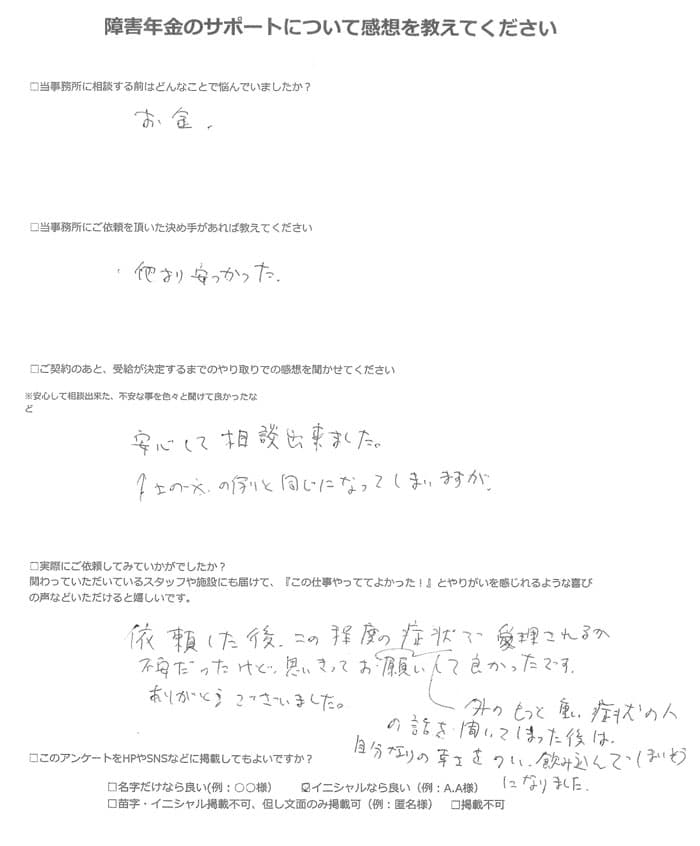 障害年金のサポートについて感想を教えてください
□当事務所に相談する前はどんなことで悩んでいましたか？
お金、
□当事務所にご依頼を頂いた決め手があれば教えてください
他より安つかった。
□ご契約のあと、受給が決定するまでのやり取りでの感想を聞かせてください
※安心して相談出来た、不安な事を色々と聞けて良かったな
ど
安心して相談出来ました。
↑上の文の例と同じになってしまいますが、
□実際にご依頼してみていかがでしたか？
関わっていただいているスタッフや施設にも届けて、『この仕事やっててよかった！』とやりがいを感じれるような喜び
の声などいただけると嬉しいです。
依頼した後、この程度の症状で受理されるか
不安だったけど、思いきってお願いして良かったです。
ありがとうございました。
外のもっと重い症状の人
の話を聞いてしまった後は、
自分なりの辛さをのい、飲み込んでしまいそう
になりました。
□このアンケートをHPやSNSなどに掲載してもよいですか？
□名字だけなら良い(例：○○様） ☑イニシャルなら良い（例：A.A様）
□苗字・イニシャル掲載不可、但し文面のみ掲載可（例：匿名様） □掲載不可